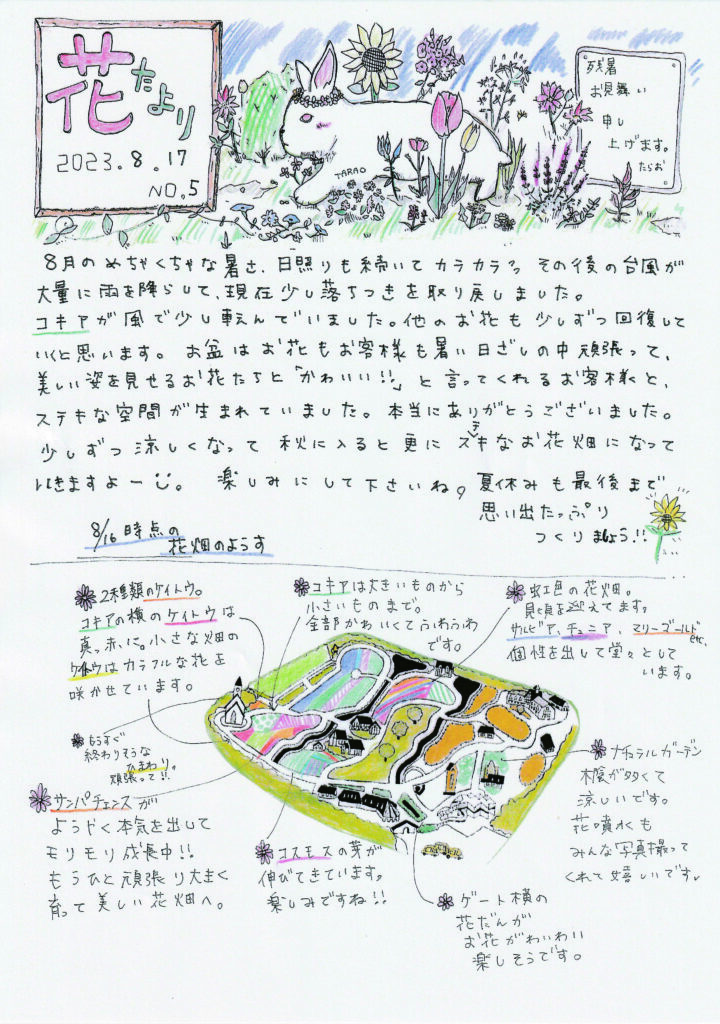 花たより
2023.8.17
NO.5
TARAO
残暑
お見舞い
申し
上げます。
たらお
8月のめちゃくちゃな暑さ、日照りも続いてカラカラっ その後の台風が
大量に雨を降らして、現在少し落ちつきを取り戻しました。
コキアが風で少し転んでいました。他のお花も少しずつ回復して
いくと思います。お盆はお花もお客様も暑い日ざしの中頑張って、
美しい姿を見せるお花たちと「かわいい!!」と言ってくれるお客様と、
ステキな空間が生まれていました。本当にありがとうございました。
少しずつ涼しくなって 秋に入ると更にステキなお花畑になって
いきますよー。 楽しみにして下さいね。夏休みも最後まで
思い出たっぷり
つくりましょう!!
8/16時点の
花畑のようす
2種類のケイトウ。
コキアの横のケイトウは
真っ赤に。小さな畑の
ケイトウはカラフルな花を
咲かせています。
コキアは大きいものから
小さいものまで。
全部かわいくてふわふわ
です。
虹色の花畑。
見頃を迎えてます。
サルビア、チュニア、マリーゴールド
etc.
個性を出して堂々として
います。
もうすぐ
終わりそうな
ひまわり。
頑張って!!
サンパチェンスが
ようやく本気を出して
モリモリ成長中!!
もうひと頑張り大きく
育って美しい花畑へ。
コスモスの芽が
伸びてきています。
楽しみですね!!
ゲート横の
花だんが
お花がわいわい
楽しそうです。
ナチュラルガーデン
木陰が多くて
涼しいです。
花噴水も
みんな写真撮って
くれて嬉しいです。